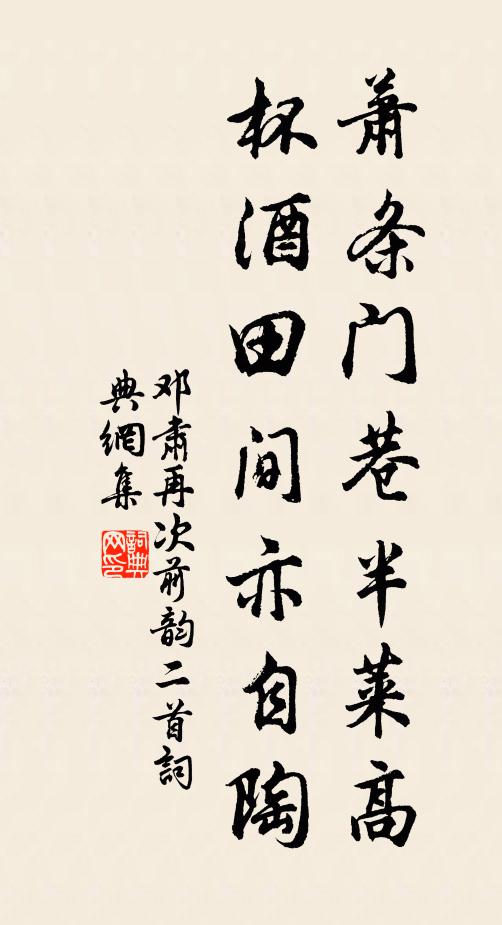 萧条门巷半莱高
杯酒田间亦自陶
邓肃再次前韵二首詞
典網集
詞典网印